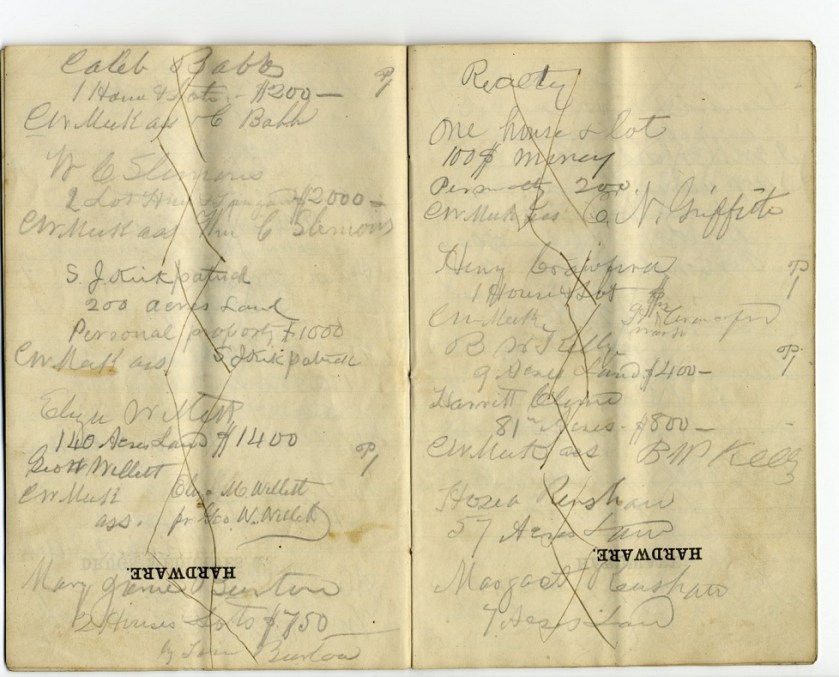 Caleb Babb
1 House & Lot - $200 —
C W Meek ass C Babb
W C Slemons
2 Lot $2000 —
C W Meek ass Wm C Slemons
S J Kirkpatrick
200 acres Land
Personal property $1000
C W Meek ass S J Kirkpatrick
Eliza Willett
140 Acres Land $1400
Geo W Willett
C W Meek Eliza M Willett
ass. pr Geo. W. Willett
HARDWARE.
Mary Jane Burton
2 Houses Lots $750
by Burton
Realty
One house & lot
100$ money
200
C W Meek ass C. N. Griffith
Henry Crawford
1 House & Lot
C W Meek
B W Kelly
9 Acres Land $400 —
Harrett Clyme
81 Acres - $800 —
C W Meek ass B W Kelly
Hozea Renshaw
57 Acres Land
HARDWARE.
Margaet Renshaw
7 Acres Land